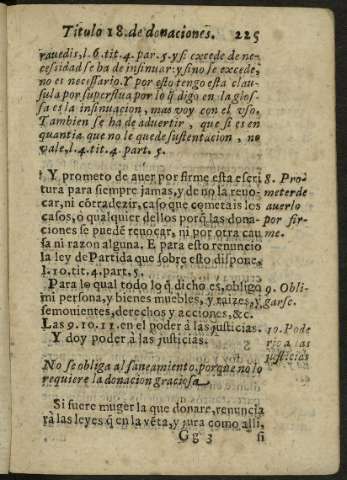 Titulo 18. de donaciones. 225
rauedis, l. 6. tit. 4. par. 5. y si excede de ne-
cessidad se ha de insinuar: y sino se excede,
no es necessario. Y por esto tengo esta clau-
sula por superflua por lo q̃ digo en la glos-
sa es la insinuacion, mas voy con el vso.
Tambien se ha de aduertir, que si es en
quantia que no le quede sustentacion, no
vale, l. 4. tit. 4. part. 5.
Y prometo de auer por firme esta escri
tura para siempre jamas, y de no la reuo-
car, ni cõtradezir, caso que cometais los
casos, o qualquier dellos porq̃ las dona-
ciones se puedẽ reuocar, ni por otra cau
sa ni razon alguna. E para esto renuncio
la ley de Partida que sobre esto dispone,
l. 10. tit. 4. part. 5.
8. Pro-
meter de
auerlo
por fir-
me.
Para lo qual todo lo q̃ dicho es, obligo
mi persona, y bienes muebles, y raizes, y
semouientes, derechos y acciones, &c.
9. Obli
garse.
Las 9. 10. 11. en el poder â las justicias.
Y doy poder â las justicias.
10. Pode
rio a las
justicias
No se obliga al saneamiento, porque no lo
requiere la donacion graciosa.
Si fuere muger la que donare, renuncia
rà las leyes q̃ en la vẽta, y jura como alli,
Gg 3 si